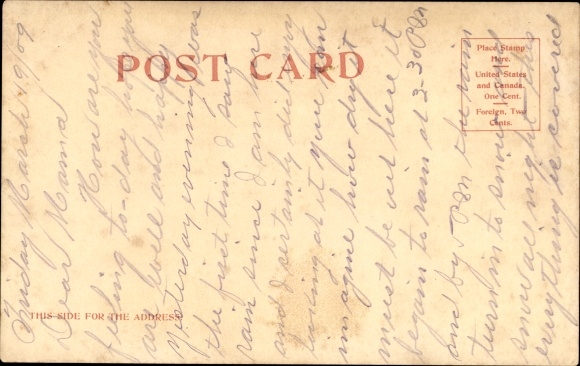 POST CARD
Place Stamp
Here.
United States
and Canada.
One Cent.
Foreign, Two
Cents.
THIS SIDE FOR THE ADDRESS
Friday March 9/09
Dear Mama
How are you
feeling to-day hope you
are well and happy
Yesterday evening was
the first time I saw
rain since I am here
and I certainly did enjoy
looking at it you can
imagine how dry it
must be out here It
begun to rain at 3-30 PM
and by 5 PM the rain
turned to snow and
snow all night
everything is covered